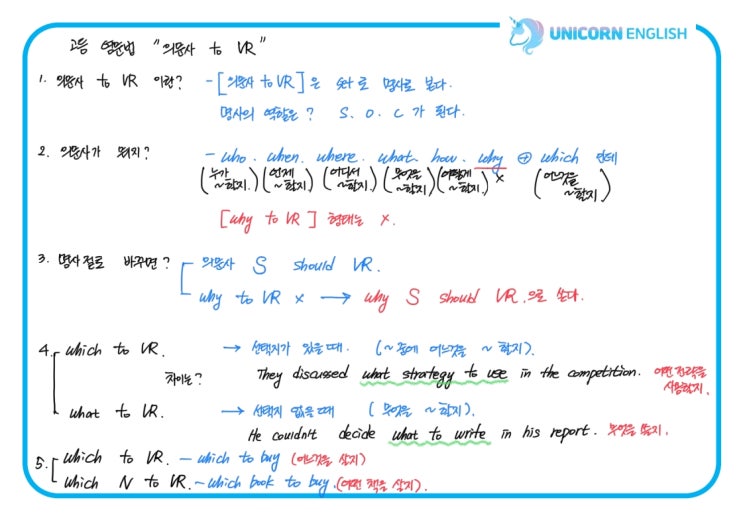 UNICORN ENGLISH
고등 영문법 "의문사 to VR"
1. 의문사 to VR 이란? - [의문사 to VR]은 set로 명사로 본다.
명사의 역할은? S. O. C 가 된다.
2. 의문사가 뭐지? - who. when. where. what. how. why ⊕ which 인데
(누가 ~할지) (언제 ~할지) (어디서 ~할지) (무엇을 ~할지) (어떻게 ~할지) x (어느것을 ~할지)
[why to VR] 형태는 x.
3. 명사절로 바꾸면? 의문사 S should VR.
why to VR x → why S should VR.으로 쓴다.
4. which to VR. → 선택지가 있을 때. (~중에 어느것을 ~할지).
차이는? They discussed what strategy to use in the competition. 어떤 전략을 사용할지.
what to VR. → 선택지 없을때 (무엇을 ~할지).
He couldn't decide what to write in his report. 무엇을 쓸지.
5. which to VR. - which to buy (어느것을 살지)
which N to VR. ~ which book to buy. (어떤 책을 살지).